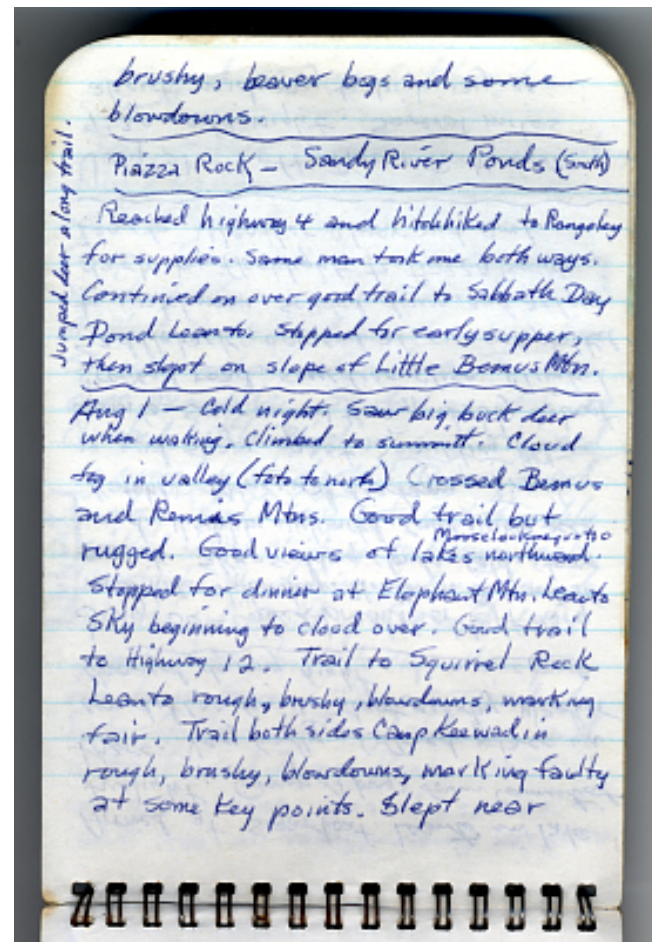 brushy, beaver bogs and some
blowdowns.
Piazza Rock — Sandy River Ponds (South)
Reached highway 4 and hitchhiked to Rangeley
for supplies. Same man took me both ways.
Continied on over good trail to Sabbath Day
Pond Leanto. Stopped for early supper,
then slept on slope of Little Bemus Mtn.
Jumped deer along trail.
Aug 1 — Cold night. Saw big buck deer
when waking. Climbed to summitt. Cloud
fog in valley (foto to north) Crossed Bemus
and Remas Mtns. Good trail, but
Mooselookmeguntic
rugged. Good views of lakes northward.
Stopped for dinner at Elephant Mtn. Leanto
Sky beginning to cloud over. Good trail
to Highway 12. Trail to Squirrel Rock
Leanto rough, brushy, blowdowns, marking
fair. Trail both sides Camp Keewadin
rough, brushy, blowdowns, marking faulty
at some key points. Slept near